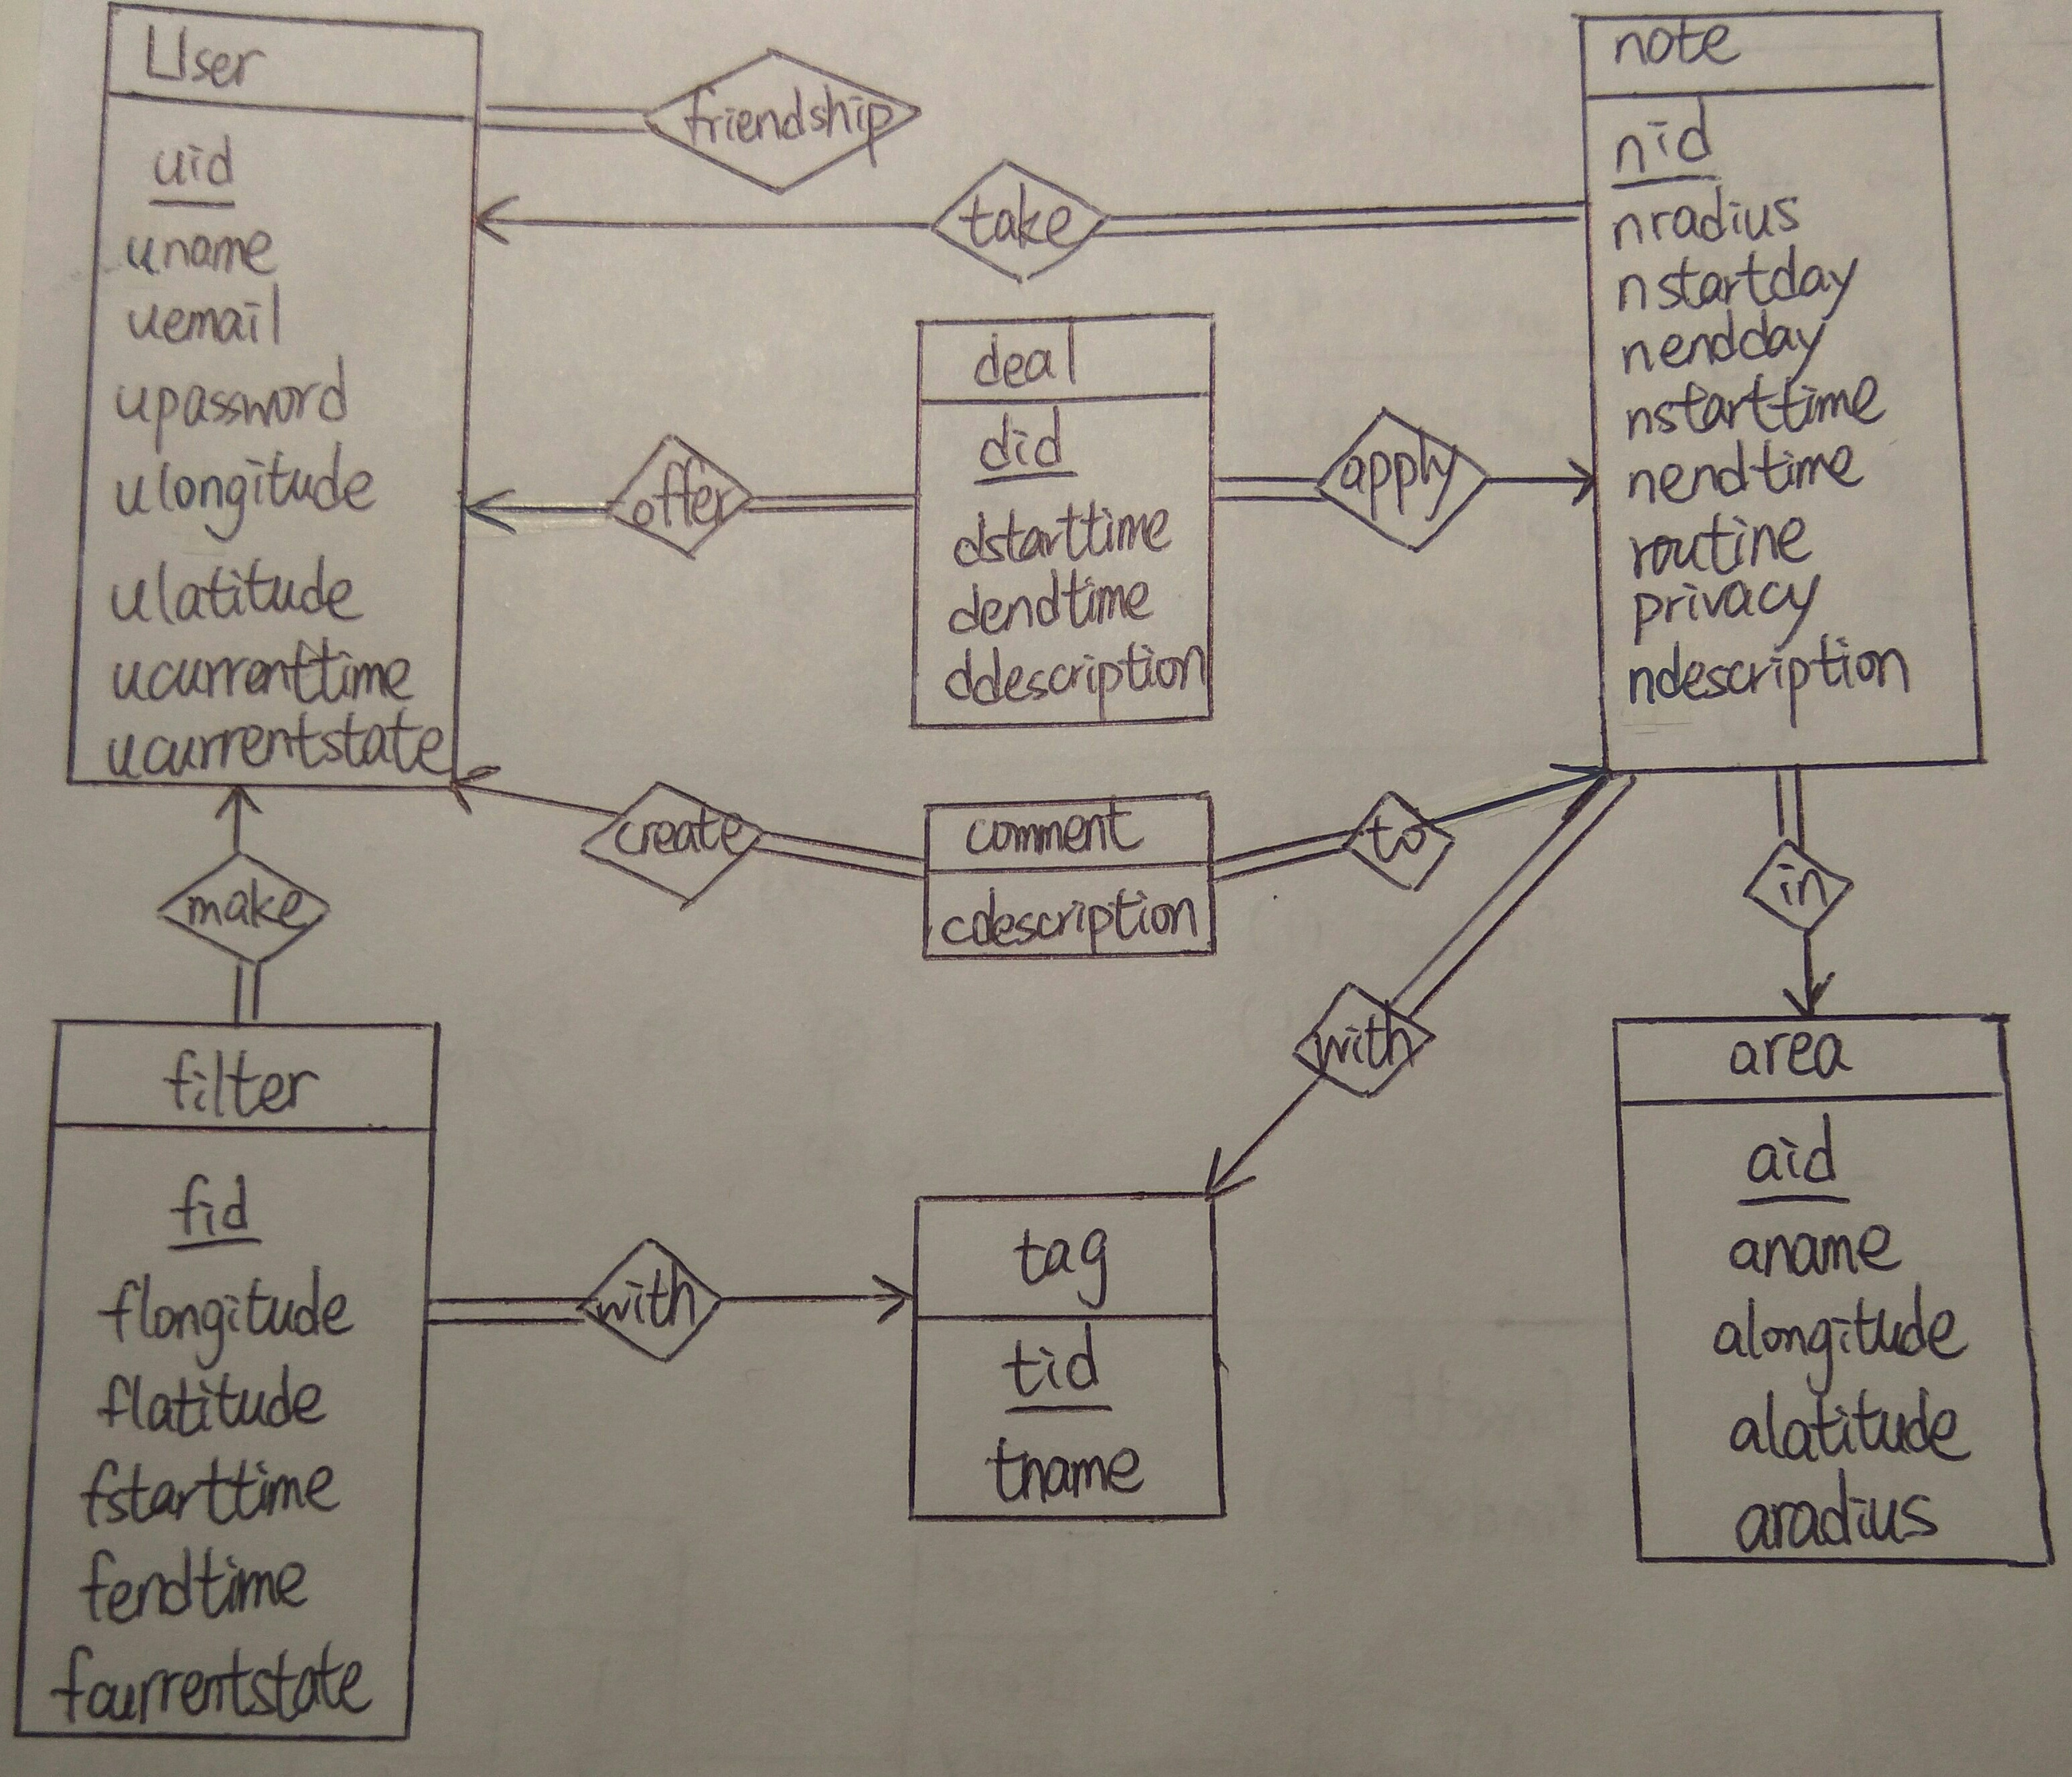 User
uid
uname
uemail
upassword
ulongitude
ulatitude
ucurrenttime
ucurrentstate
friendship
take
note
nid
nradius
nstartday
nendday
nstarttime
nendtime
routine
privacy
ndescription
deal
did
dstarttime
dendtime
ddescription
offer
apply
create
comment
cdescription
to
in
make
with
filter
fid
flongitude
flatitude
fstarttime
fendtime
fcurrentstate
with
tag
tid
tname
area
aid
aname
alongitude
alatitude
aradius